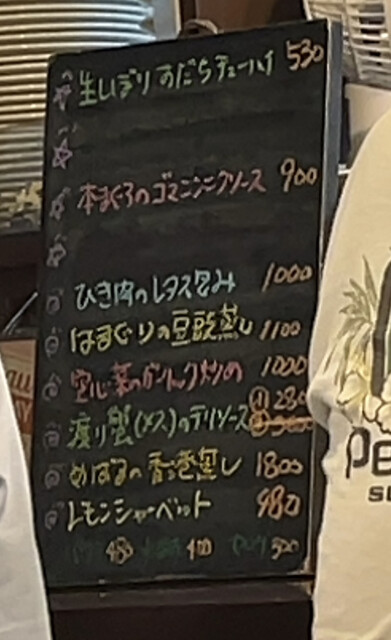 生しぼりすだちチューハイ 530
本まぐろのゴマニンニクソース 900
ひき肉のレタス包み 1000
はまぐりの豆豉蒸し 1100
空心菜のガーリック炒め 1000
渡り蟹(メス)のチリソース
めばるの香港蒸し 1800
レモンシャーベット 980
480 400 500
Pe
SE